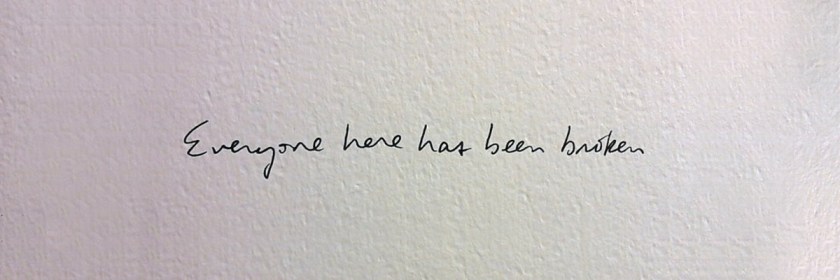 Everyone here has been broken